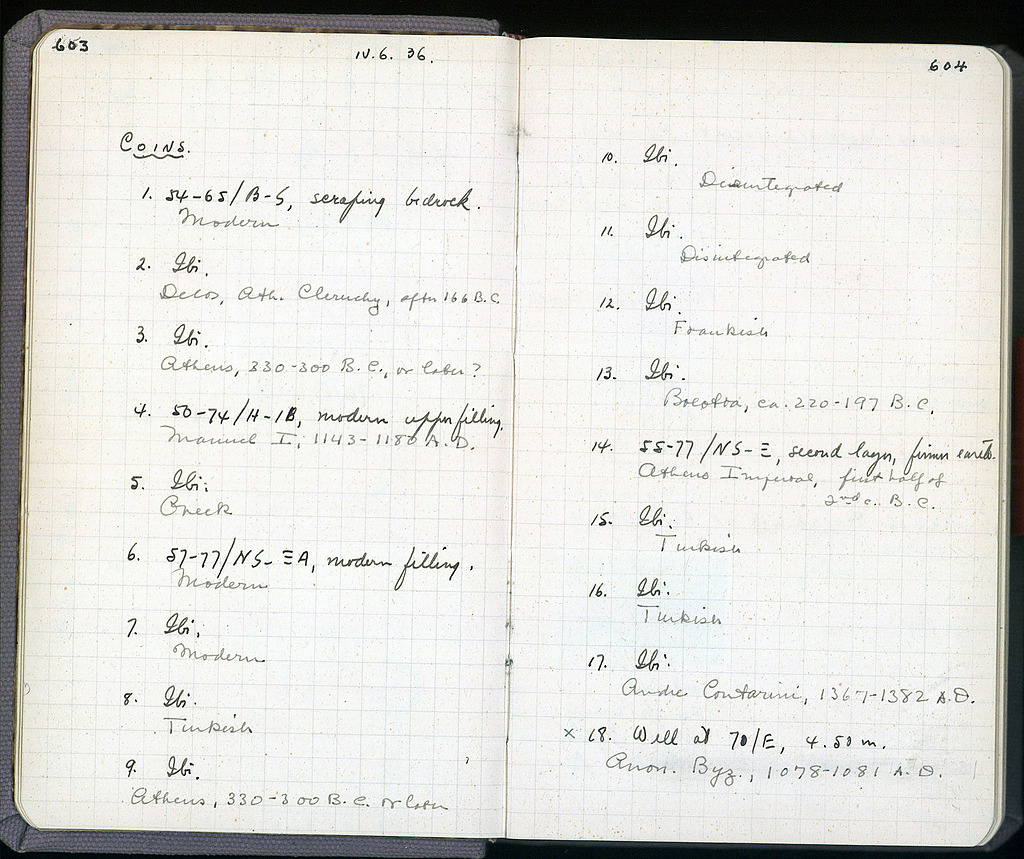 603
IV. 6. 36.
COINS.
1. 54-65/B-S, scraping bedrock.
Modern
2. Ibi.
Delos, Ath. Cleruchy, after 166 B.C.
3. Ibi.
Athens, 330-300 B.C., or later?
4. 50-74/H-IB, modern upper filling.
Manuel I, 1143-1180 A.D.
5. Ibi.
Greek
6. 57-77/NS-ΞA, modern filling.
Modern
7. Ibi.
Modern
8. Ibi.
Turkish
9. Ibi.
Athens, 330-300 B.C. or later
604
10. Ibi.
Disintegrated
11. Ibi.
Disintegrated
12. Ibi.
Frankish
13. Ibi.
Boeotia, ca. 220-197 B.C.
14. 55-77/NS-Ξ, second layer, firmer earth.
Athens Imperial, first half of
2nd c. B.C.
15. Ibi.
Turkish
16. Ibi.
Turkish
17. Ibi.
Andre Contarini, 1367-1382 A.D.
× 18. Well at 70/E, 4.50 m.
Anon. Byz., 1078-1081 A.D.